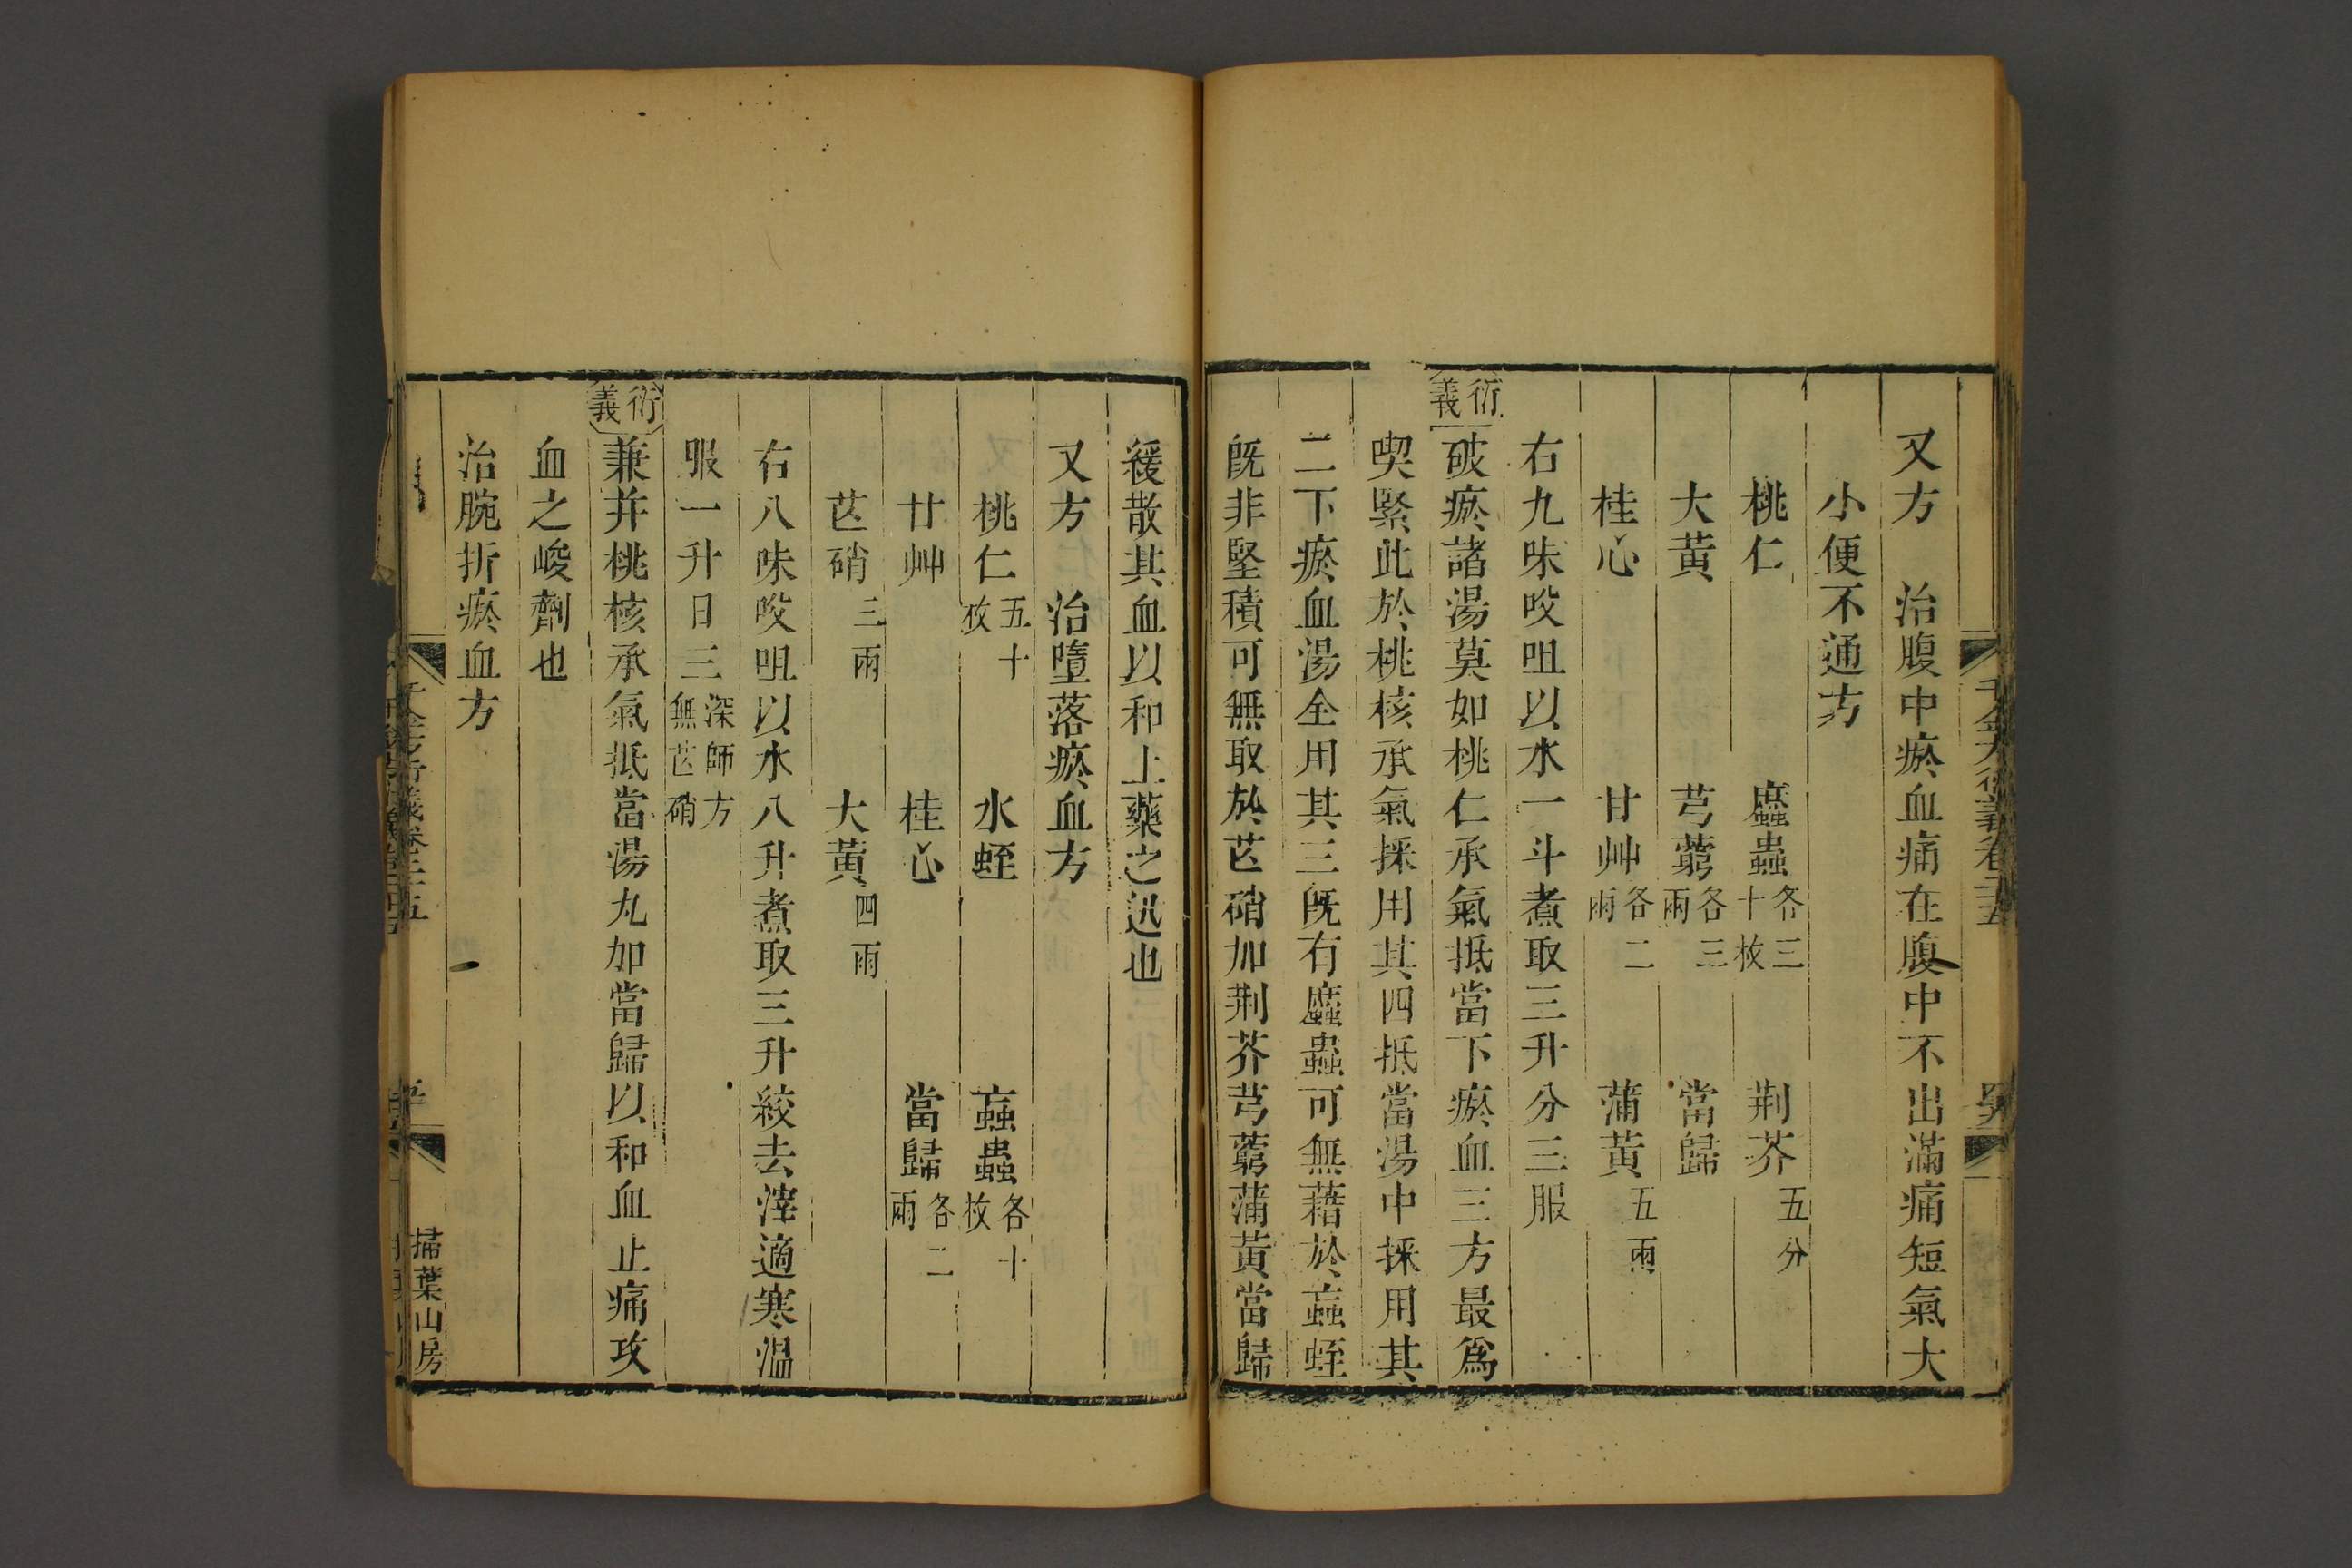 又方　治腹中瘀血痛在腹中不出滿痛短氣大
小便不通方
桃仁　䗪蟲各三十枚　荆芥五分
大黄　芎藭各三兩　當歸
桂心　甘艸各二兩　蒲黄五兩
右九味㕮咀以水一斗煮取三升分三服
衍義　破瘀諸湯莫如桃仁承氣抵當下瘀血三方最爲
喫緊此於桃核承氣採用其四抵當湯中採用其
二下瘀血湯全用其三旣有䗪蟲可無藉於蝱蛭
旣非堅積可無取於芒硝加荆芥芎藭蒲黄當歸
緩散其血以和上藥之迅也
又方　治墮落瘀血方
桃仁五十枚　水蛭　蝱蟲各十枚
甘艸　桂心　當歸各二兩
芒硝三兩　大黄四兩
右八味㕮咀以水八升煮取三升絞去滓適寒温
服一升日三深師方無芒硝
衍義　兼并桃核承氣抵當湯丸加當歸以和血止痛攻
血之峻劑也
治腕折瘀血方
千金方衍義卷二十五
掃葉山房